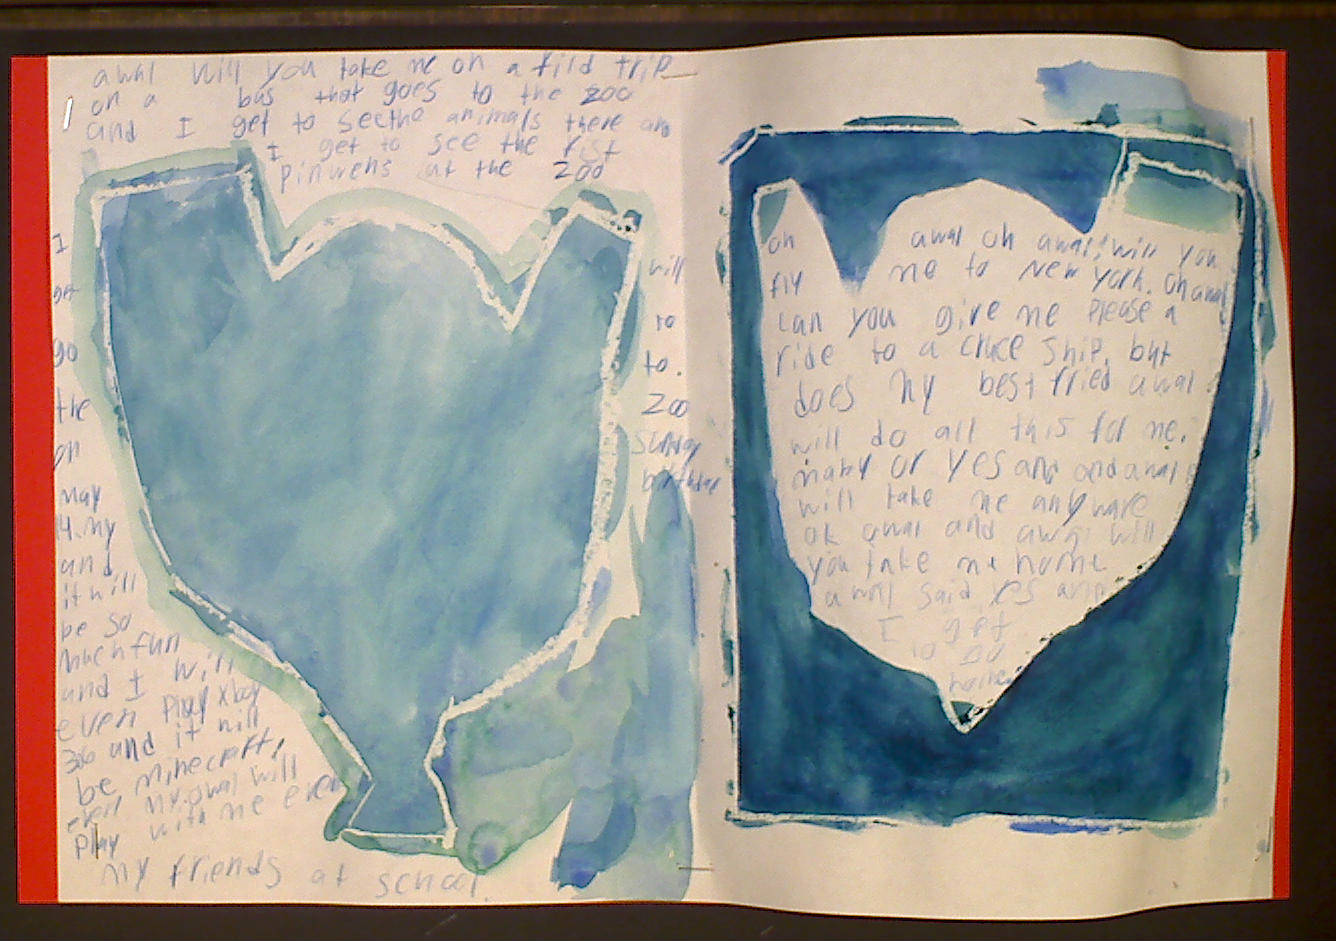 awal will you take me on a fild trip
on a bus that goes to the zoo
and I get to seethe animals there an
I get to see the rist
pinwens at the zoo
I will
go to
to.
the Zoo
on Sunday
may birthday
14. my
and
it will
be so
much fun
and I will
even play xboy
360 and it will
be minecraft,
even my awal will
play with me even
my friends at school.
oh awal oh awal, will you
fly me to New york. oh awal
can you give me please a
ride to a cruce ship, but
does my best fried awal
will do all this for me.
maby or yes and andawal
will take me anyware
ok awal and awal will
you take me home
awall said yes and
I get
to go
home